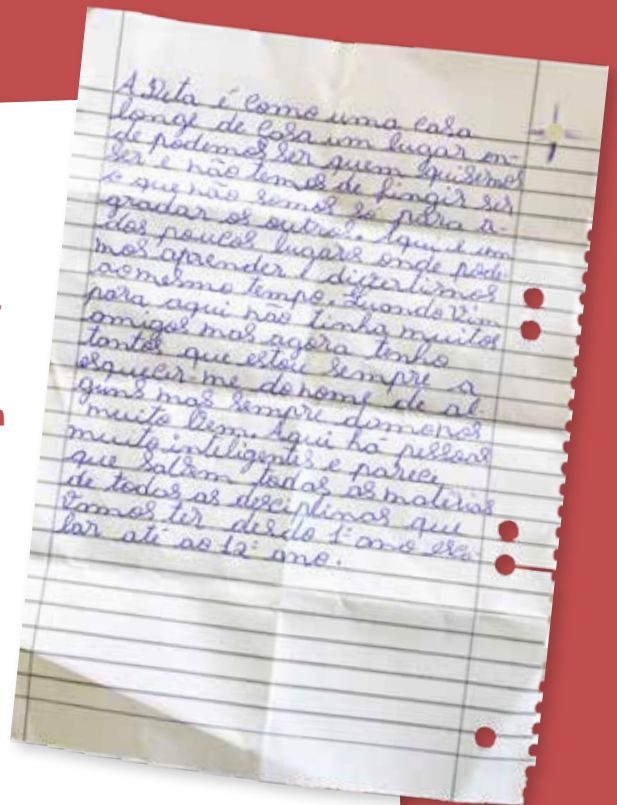 A Dita é como uma casa
longe de casa um lugar on-
de podemos ser quem quisermos
ser e não temos de fingir ser
o que não somos só para a-
gradar os outros. Aqui é um
dos poucos lugares onde pode-
mos aprender e divertirmos
ao mesmo tempo. Quando vim
para aqui não tinha muitos
amigos mas agora tenho
tantos que estou sempre a
esquecer-me do nome de al-
guns mas sempre damonos
muito bem. Aqui há pessoas
muito inteligentes e parece
que sabem todas as matérias
de todas as disciplinas que
vamos ter desdo 1º ano esco-
lar até ao 12º ano.